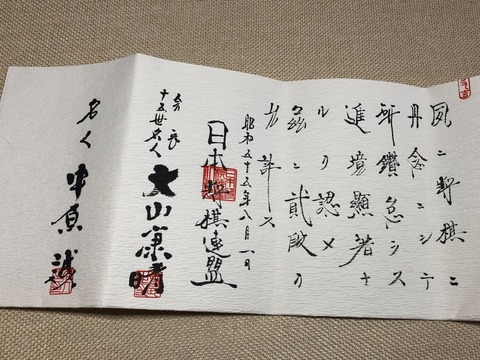 夙ニ将棋ニ
丹念ニシテ
研鑽怠ラス
進境顕著ナ
ルヲ認メ
茲ニ貳段ヲ
允許ス
昭和五十五年八月一日
日本将棋連盟
会長
十五世名人 大山康晴
名人 中原誠